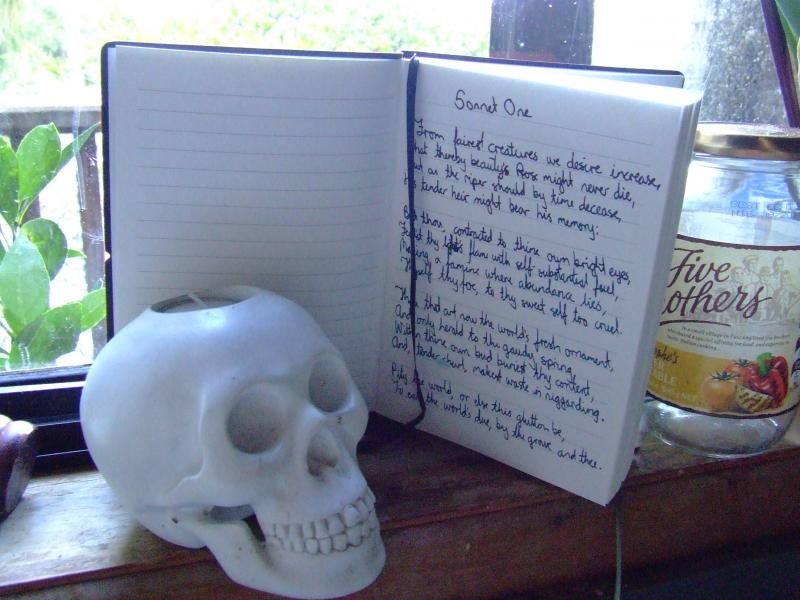 Sonnet One
From fairest creatures we desire increase,
That thereby beauty's Rose might never die,
But as the riper should by time decease,
His tender heir might bear his memory:
But thou, contracted to thine own bright eyes,
Feed'st thy light's flame with self substantial fuel,
Making a famine where abundance lies,
Thyself thy foe, to thy sweet self too cruel.
Thou that art now the world's fresh ornament,
And only herald to the gaudy spring,
Within thine own bud buriest thy content,
And, tender churl, makest waste in niggarding.
Pity the world, or else this glutton be,
To eat the world's due, by the grave and thee.
Five
Brothers